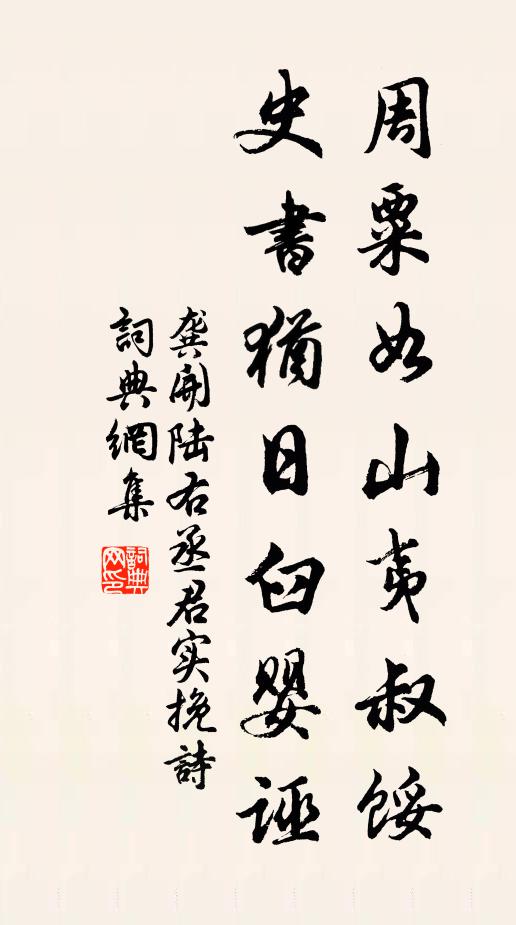 周粟如山夷叔餒
史書猶日臼嬰誣
龔開陸右丞君实挽詩
詞典網集
詞典网印